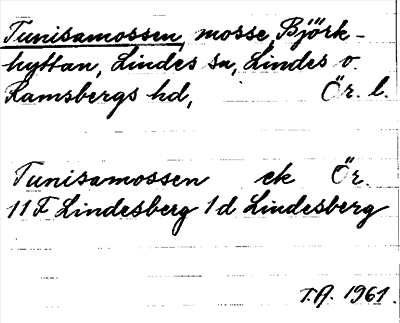 Tunisamossen, mosse, Björk-
hyttan, Lindes sn, Lindes o.
Ramsbergs hd, Ör. l.
Tunisamossen ek Ör.
11F Lindesberg 1d Lindesberg
T.A. 1961.